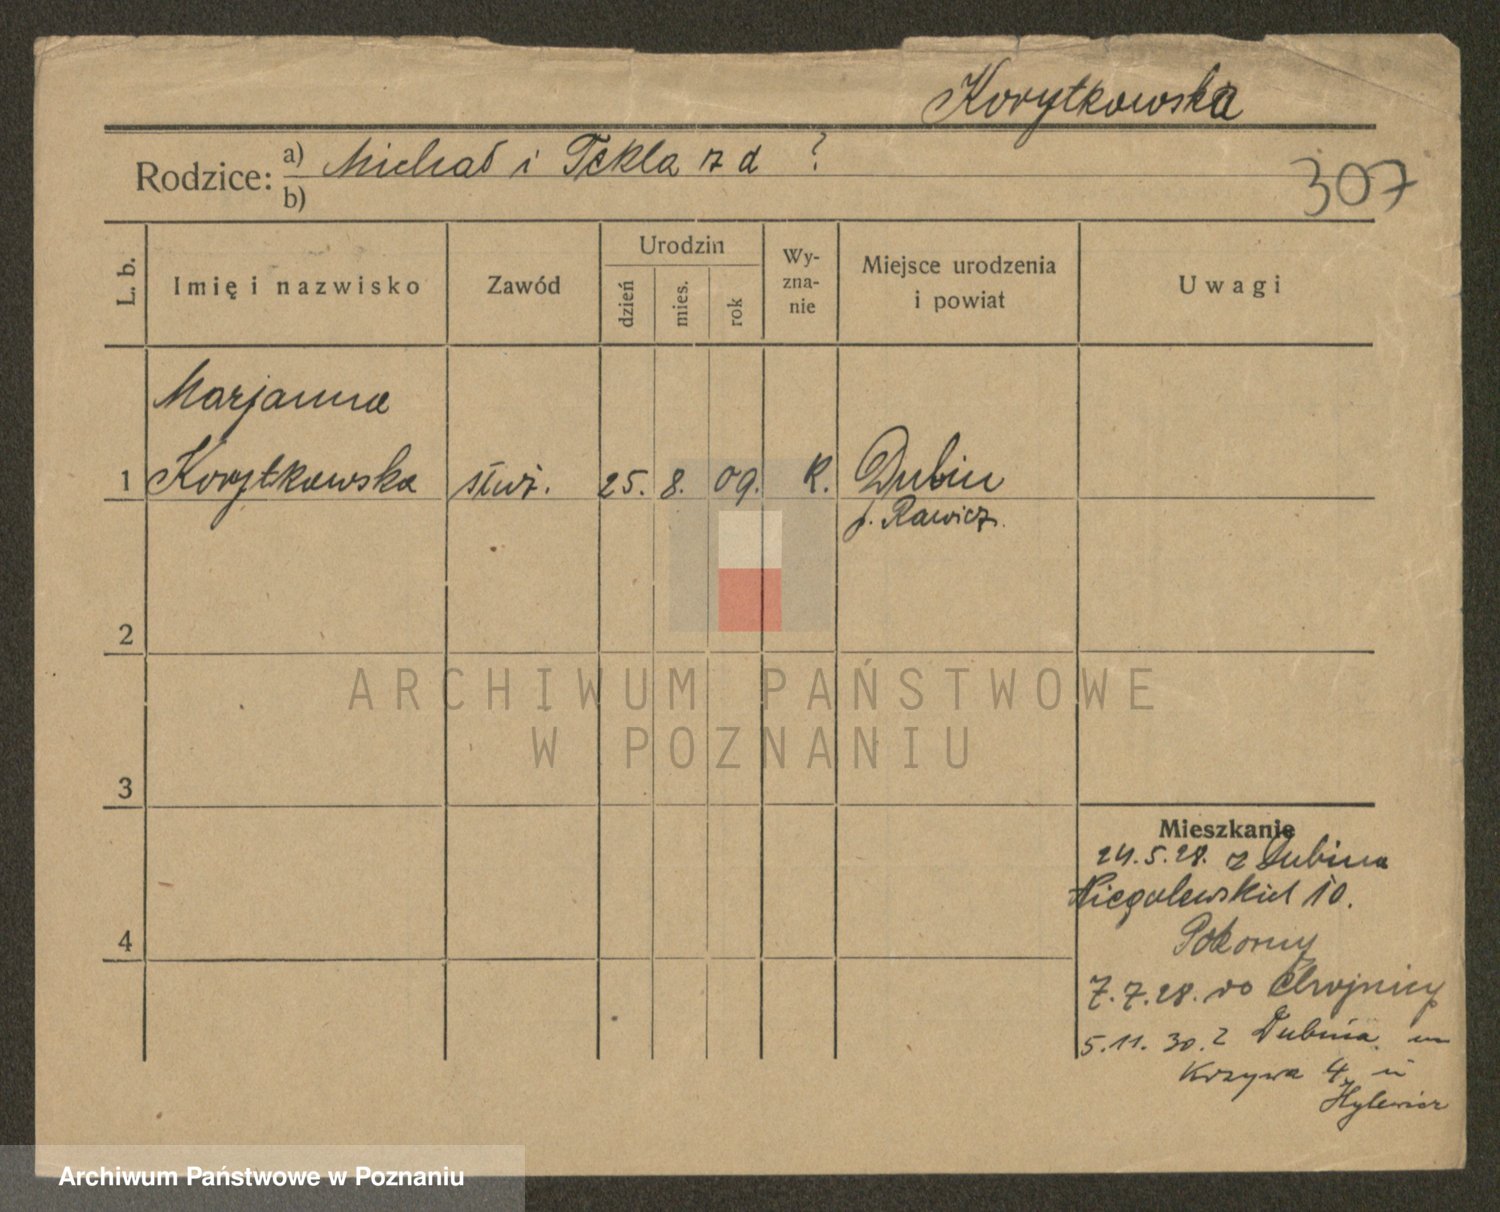 Korytkowska
Rodzice: a) Michał i Tekla z d ?
b)
307
L. b.
Imię i nazwisko
Zawód
Urodzin
dzień
mies.
rok
Wy-
zna-
nie
Miejsce urodzenia
i powiat
Uwagi
Marjanna
1 Korytkowska służ. 25. 8. 09. K. Dubin
p. Rawicz.
2
ARCHIWUM PAŃSTWOWE
W POZNANIU
3
Mieszkanie
24.5.28. z Dubina
Niegolewskich 10.
4
Pokorny
7.7.28. do Chojnicy
5.11.30. z Dubina
Krzywa 4 u
Hylewicz
Archiwum Państwowe w Poznaniu